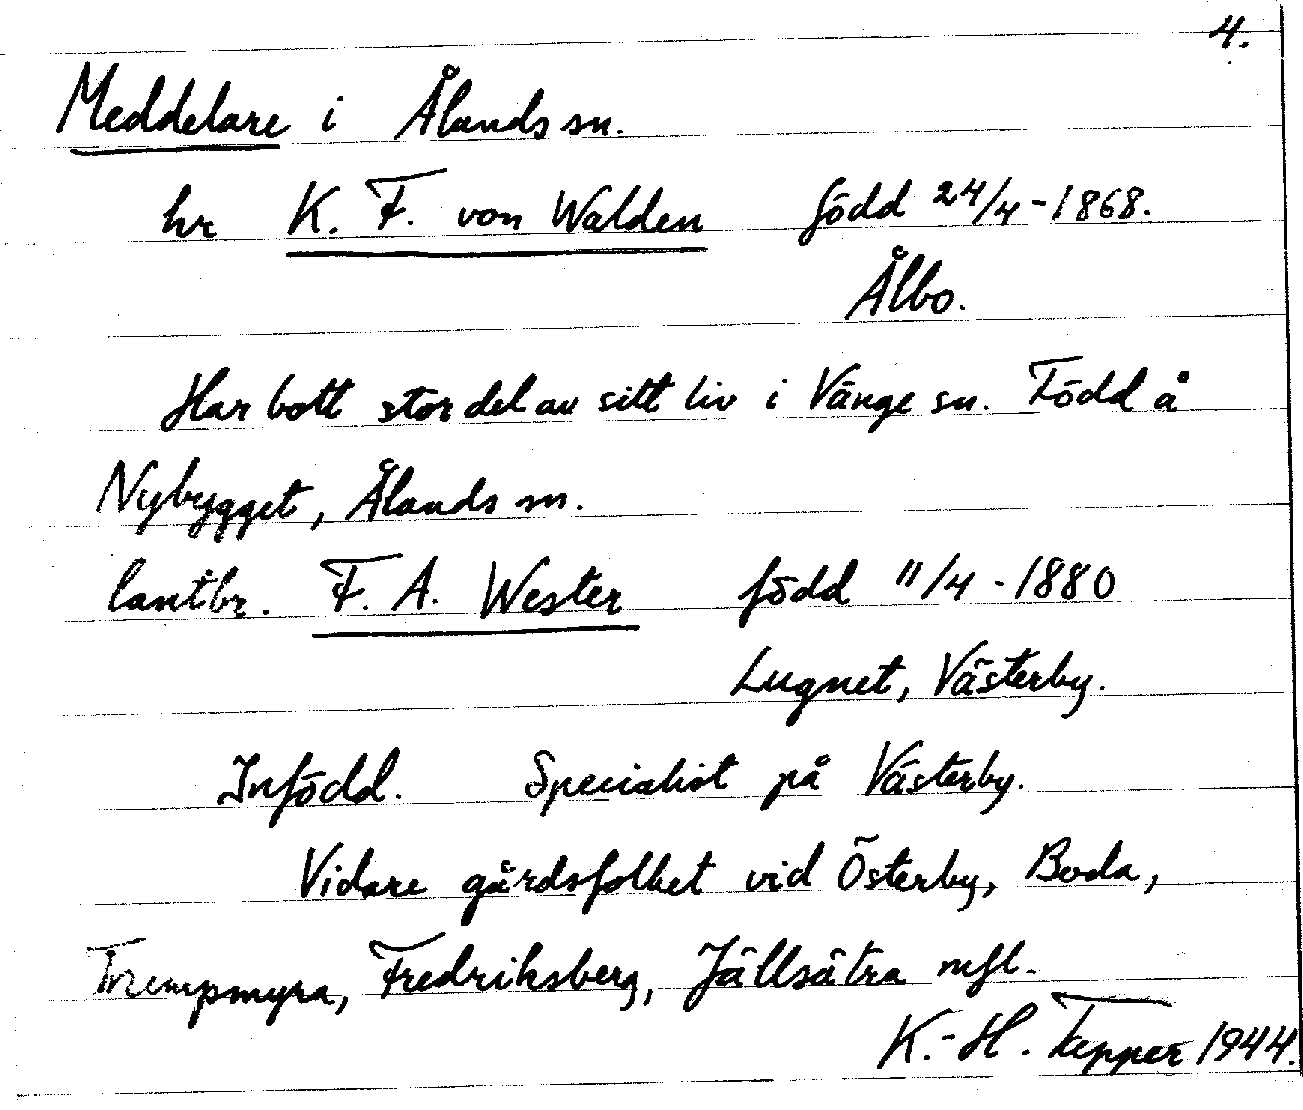 4.
Meddelare i Ålands sn.
hr K. F. von Walden född 24/4-1868.
Ålbo.
Har bott stor del av sitt liv i Vänge sn. Född å
Nybygget, Ålands sn.
lantbr. F. A. Wester född 11/4-1880
Lugnet, Västerby.
Infödd. Specialist på Västerby.
Vidare gårdsfolket vid Österby, Boda,
Trumpmyra, Fredriksberg, Jällsätra mfl.
K.-H. Tepper 1944.